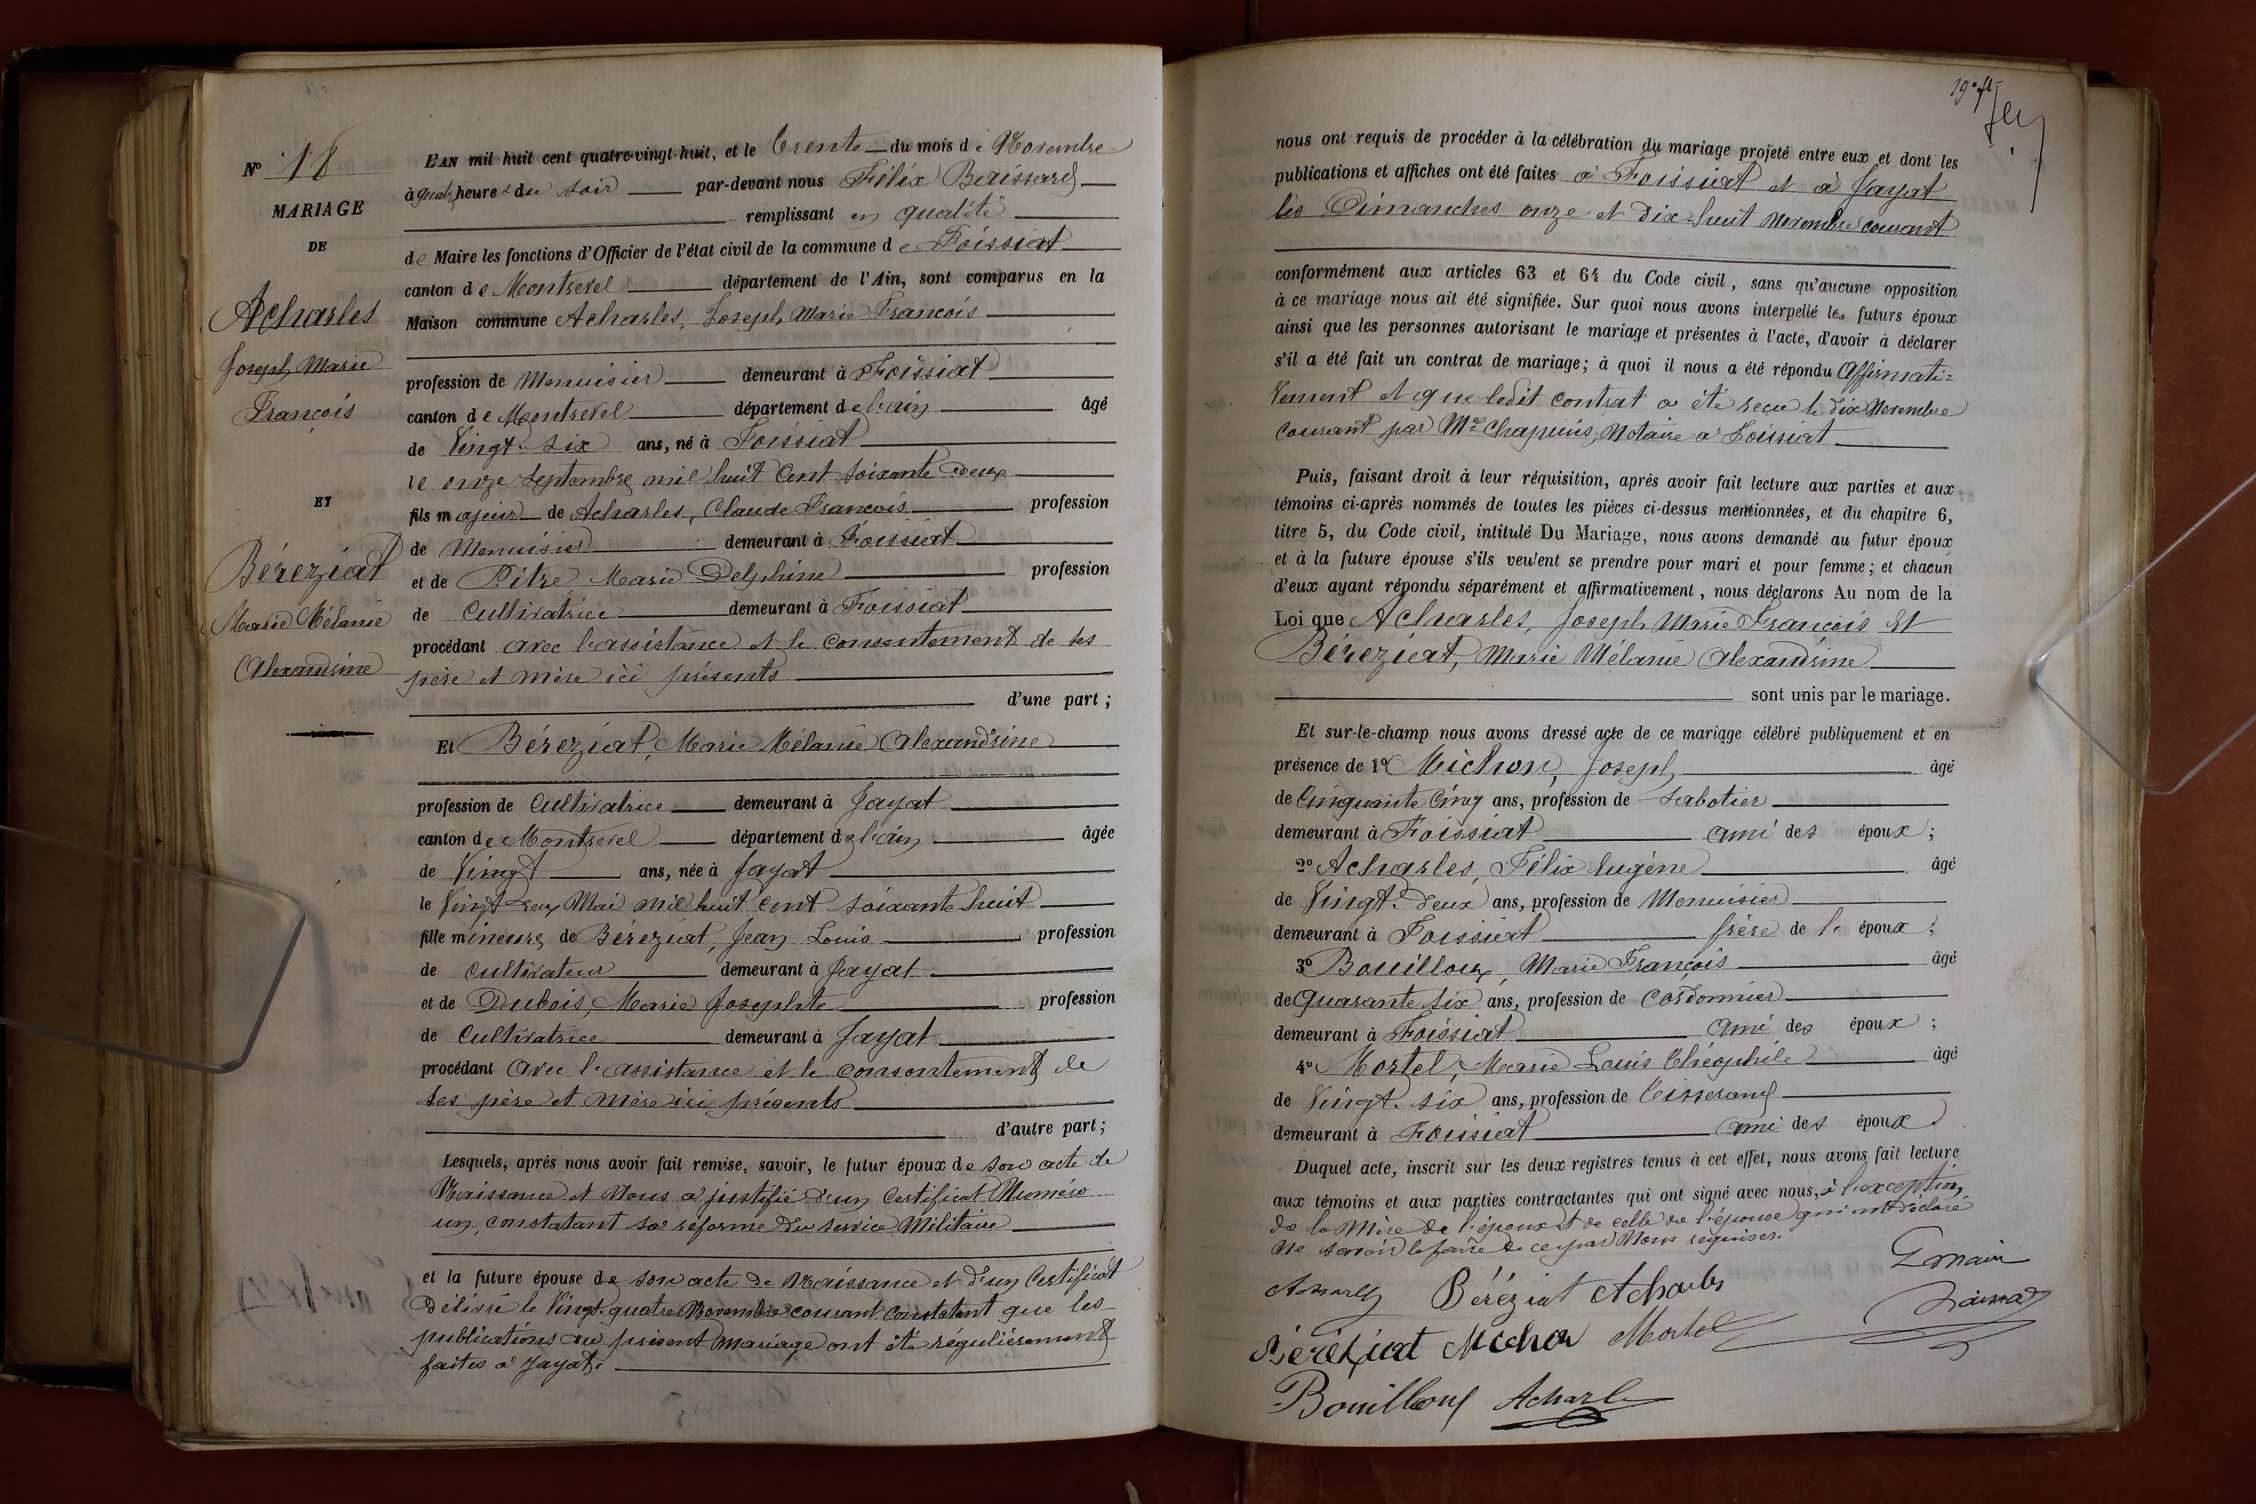 Nº 18
MARIAGE
DE
Acharles
Joseph Marie
François
ET
Béréziat
Marie Mélanie
Alexandrine
L'AN mil huit cent quatre-vingt-huit, et le trente du mois de Novembre
à quatre heures du soir par-devant nous Félix
remplissant en qualité
de Maire les fonctions d'Officier de l'état civil de la commune de Foissiat
canton de Montrevel département de l'Ain, sont comparus en la
Maison commune Acharles, Joseph Marie François
profession de Menuisier demeurant à Foissiat
canton de Montrevel département de l'ain âgé
de Vingt-six ans, né à Foissiat
le onze Septembre mil huit cent soixante deux
fils majeur de Acharles, Claude François profession
de Menuisier demeurant à Foissiat
et de Pitre Marie Delphine profession
de Cultivatrice demeurant à Foissiat
procédant avec l'assistance et le consentement de ses
père et mère ici présents
d'une part ;
Et Béréziat, Marie Mélanie Alexandrine
profession de Cultivatrice demeurant à Jayat
canton de Montrevel département de l'ain âgée
de Vingt ans, née à Jayat
le Vingt deux Mai mil huit cent soixante huit
fille mineure de Béréziat, Jean Louis profession
de Cultivateur demeurant à Jayat
et de Dubois, Marie Josephte profession
de Cultivatrice demeurant à Jayat
procédant avec l'assistance et le consentement de
ses père et mère ici présents
d'autre part ;
Lesquels, après nous avoir fait remise, savoir, le futur époux de son acte de
Naissance et Nous a justifié d'un Certificat Numéro
un, constatant sa réforme du service Militaire
et la future épouse de son acte de Naissance et d'un Certificat
Délivré le Vingt-quatre Novembre courant constatant que les
publications du présent mariage ont été régulièrement
faites à Jayat.
nous ont requis de procéder à la célébration du mariage projeté entre eux et dont les
publications et affiches ont été faites à Foissiat et à Jayat
les Dimanches onze et dix-huit Novembre courant
conformément aux articles 63 et 64 du Code civil, sans qu'aucune opposition
à ce mariage nous ait été signifiée. Sur quoi nous avons interpellé les futurs époux
ainsi que les personnes autorisant le mariage et présentes à l'acte, d'avoir à déclarer
s'il a été fait un contrat de mariage ; à quoi il nous a été répondu Affirmati=
Vement et que ledit contrat a été reçu le dix Novembre
Courant par Me Chapuis, Notaire à Foissiat
Puis, faisant droit à leur réquisition, après avoir fait lecture aux parties et aux
témoins ci-après nommés de toutes les pièces ci-dessus mentionnées, et du chapitre 6,
titre 5, du Code civil, intitulé Du Mariage, nous avons demandé au futur époux
et à la future épouse s'ils veulent se prendre pour mari et pour femme ; et chacun
d'eux ayant répondu séparément et affirmativement, nous déclarons Au nom de la
Loi que Acharles, Joseph Marie François Et
Béréziat, Marie Mélanie Alexandrine
sont unis par le mariage.
Et sur-le-champ nous avons dressé acte de ce mariage célébré publiquement et en
présence de 1º Michon, Joseph âgé
de Cinquante Cinq ans, profession de Sabotier
demeurant à Foissiat ami des époux ;
2º Acharles, Félix Eugène âgé
de Vingt-deux ans, profession de Menuisier
demeurant à Foissiat frère de l' époux ;
3º Bouilloux, Marie François âgé
de Quarante six ans, profession de Cordonnier
demeurant à Foissiat ami des époux ;
4º Mortel, Marie Louis Théophile âgé
de Vingt-six ans, profession de Tisserand
demeurant à Foissiat ami des époux
Duquel acte, inscrit sur les deux registres tenus à cet effet, nous avons fait lecture
aux témoins et aux parties contractantes qui ont signé avec nous, à l'exception
de la Mère de l'époux et de celle de l'épouse qui ont déclaré
Ne savoir le faire de ce par Nous requises.
Béréziat Acharles
Béréziat Michon Mortel
Bouilloux Acharles